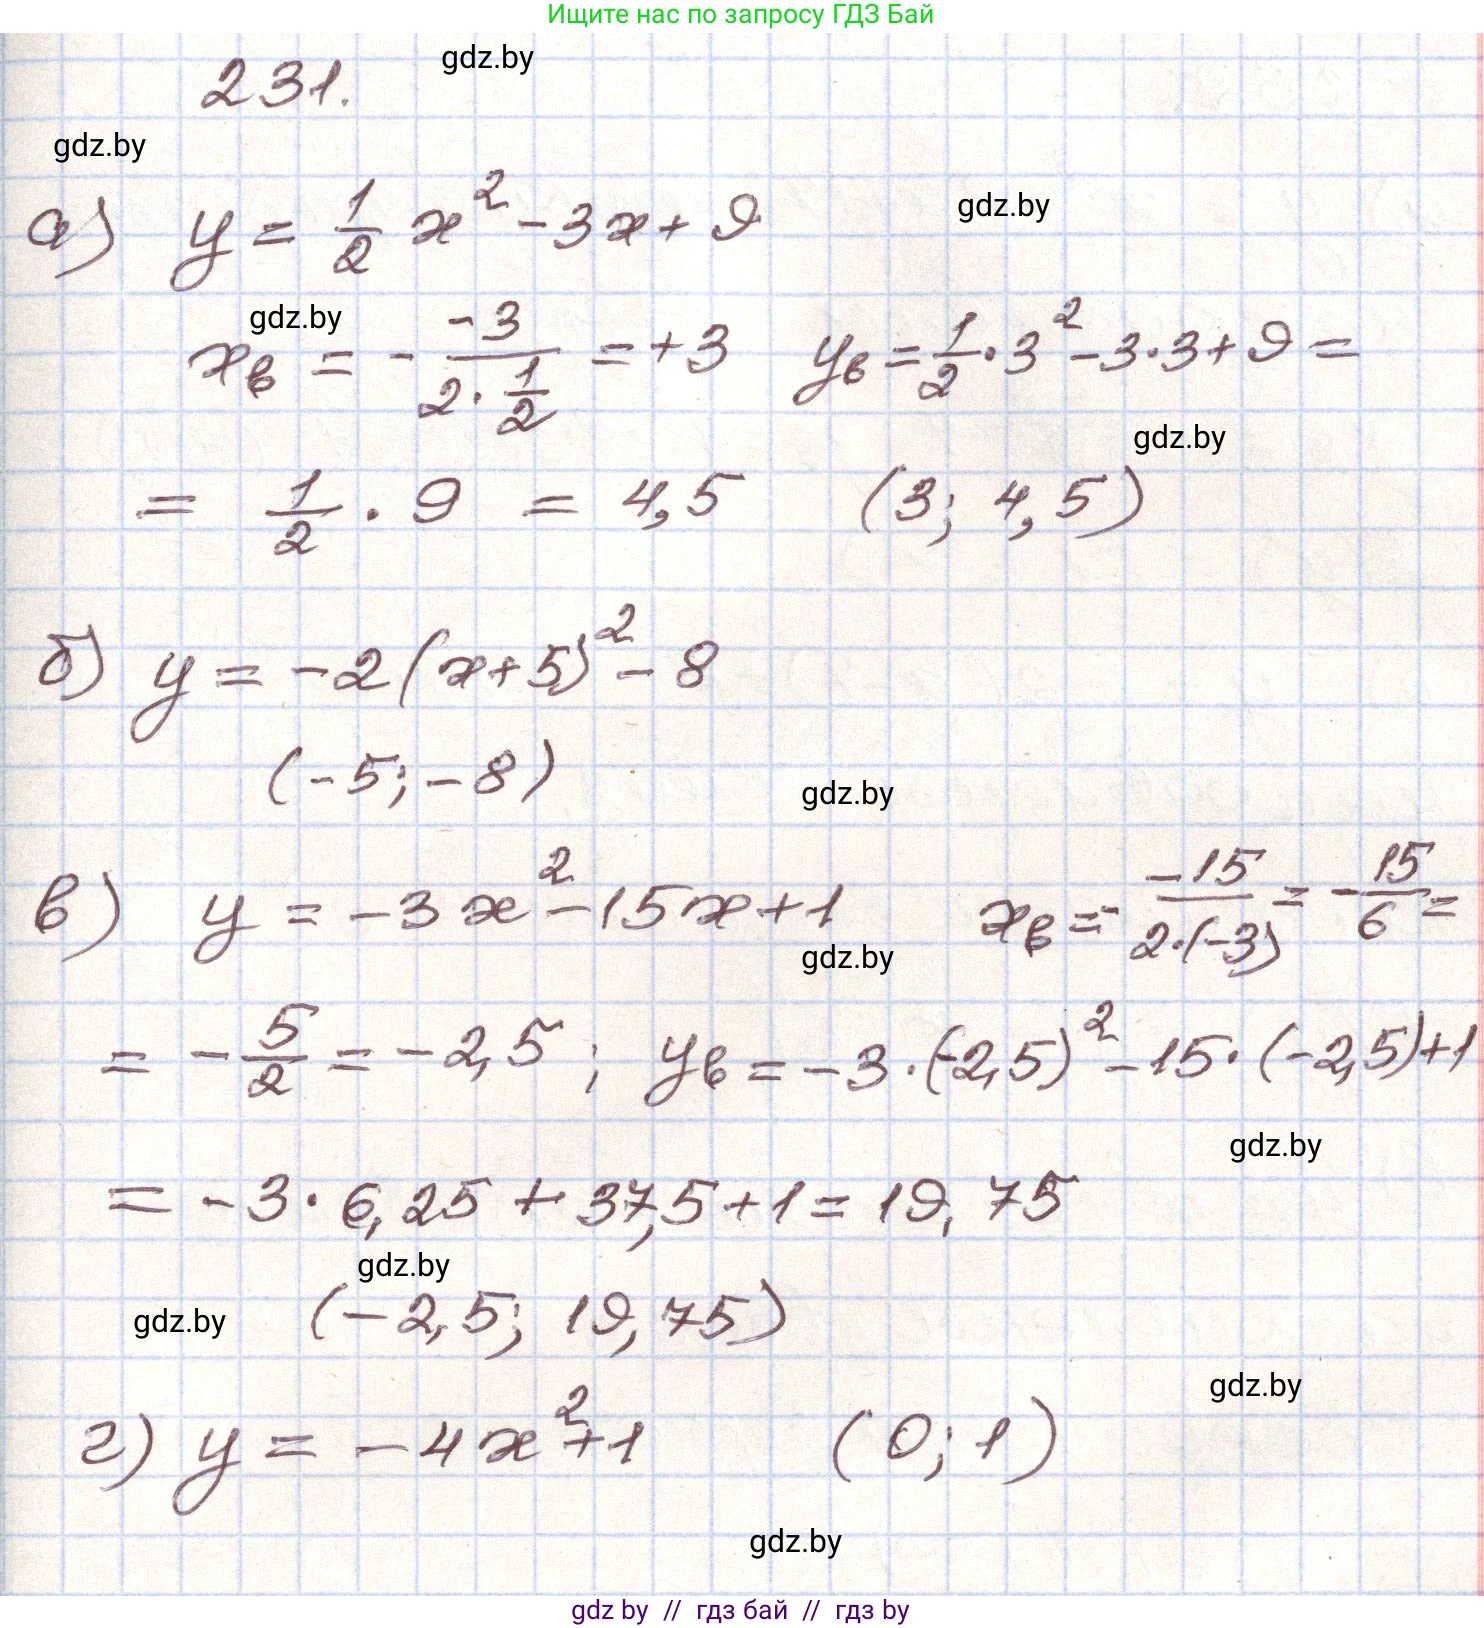 Ищите нас по запросу ГДЗ Бай
gdz.by
231.
gdz.by
а) y = 1/2 x² - 3x + 9
gdz.by
gdz.by
xв = - -3/(2·1/2) = +3 yв = 1/2 · 3² - 3·3 + 9 =
gdz.by
= 1/2 · 9 = 4,5 (3; 4,5)
б) y = -2(x+5)² - 8
(-5; -8)
gdz.by
в) y = -3x² - 15x + 1 xв = - -15/(2·(-3)) = - 15/6 =
gdz.by
= - 5/2 = -2,5 ; yв = -3·(-2,5)² - 15·(-2,5)+1
gdz.by
= -3·6,25 + 37,5 + 1 = 19,75
gdz.by
gdz.by
(-2,5; 19,75)
gdz.by
г) y = -4x² + 1 (0; 1)
gdz.by
gdz by // гдз бай // гдз by